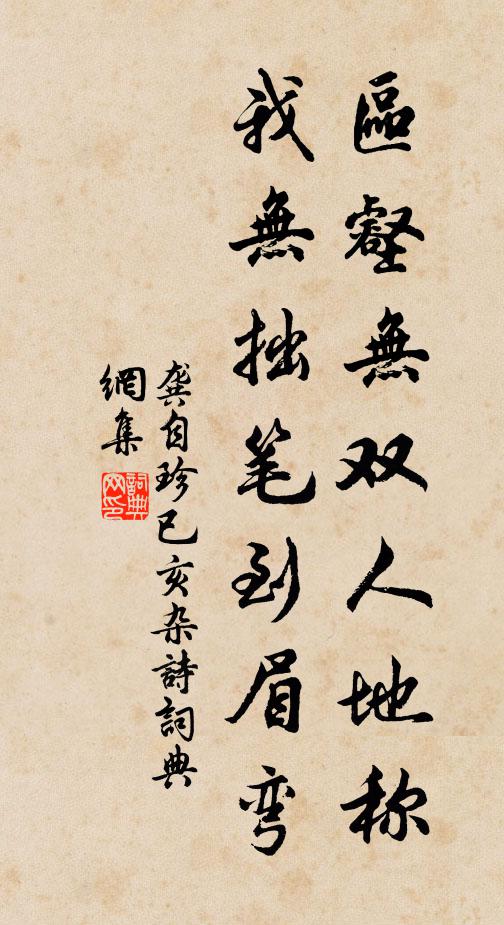 區壑無双人地称
我無拙笔到眉弯
龚自珍己亥杂詩詞典
網集
詞典网印